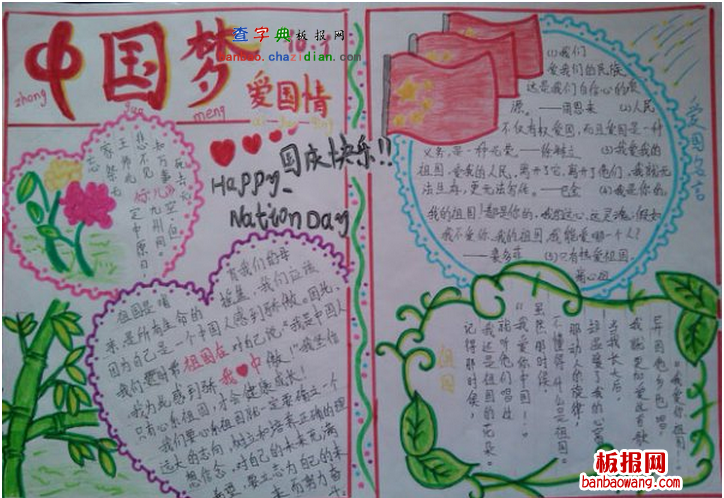 中国梦
zhong
guo
meng
10.1
查字典板报网
banbao.chazidian.com
爱国情
ai guo qing
国庆快乐!!
Happy
Nation Day
死去元知万事空,但
悲不见九州同。
王师北定中原日,
家祭无忘
示儿
祖国是哺
育我们的母
亲,是所有生命的
摇篮,我们应该
因为自己是一个中国人感到骄傲。因此,
我们要时时
祖国在
对自己说:“我是中国人
我为此感到骄
我♥中
傲!”我坚信
只有心系祖国,才会健康成长!
我们要心系祖国就一定要确立一个
远大的志向,树立和培养正确的理
想信念,对自己的未来充满
(1)我们
爱我们的民族,
这是我们自信心的泉
源。——周恩来 (2)人民
不仅有权爱国,而且爱国是一种
义务,是一种光荣。——徐特立 (3)我爱我的
祖国,爱我的人民,离开了它,离开了他们,我就无
法生存,更无法写作。——巴金 (4)我是你的,
我的祖国!都是你的,我的这心、这灵魂;假如
我不爱你,我的祖国,我能爱哪一个人?
(5)只有热爱祖国,
爱国名言
祖国
记得那时候,
我还是祖国的花朵。
“我爱你中国!…”
虽然那时候,
不懂得什么是祖国。
当我长大后,
“我爱你祖国!…”
板报网
banbaowang.com